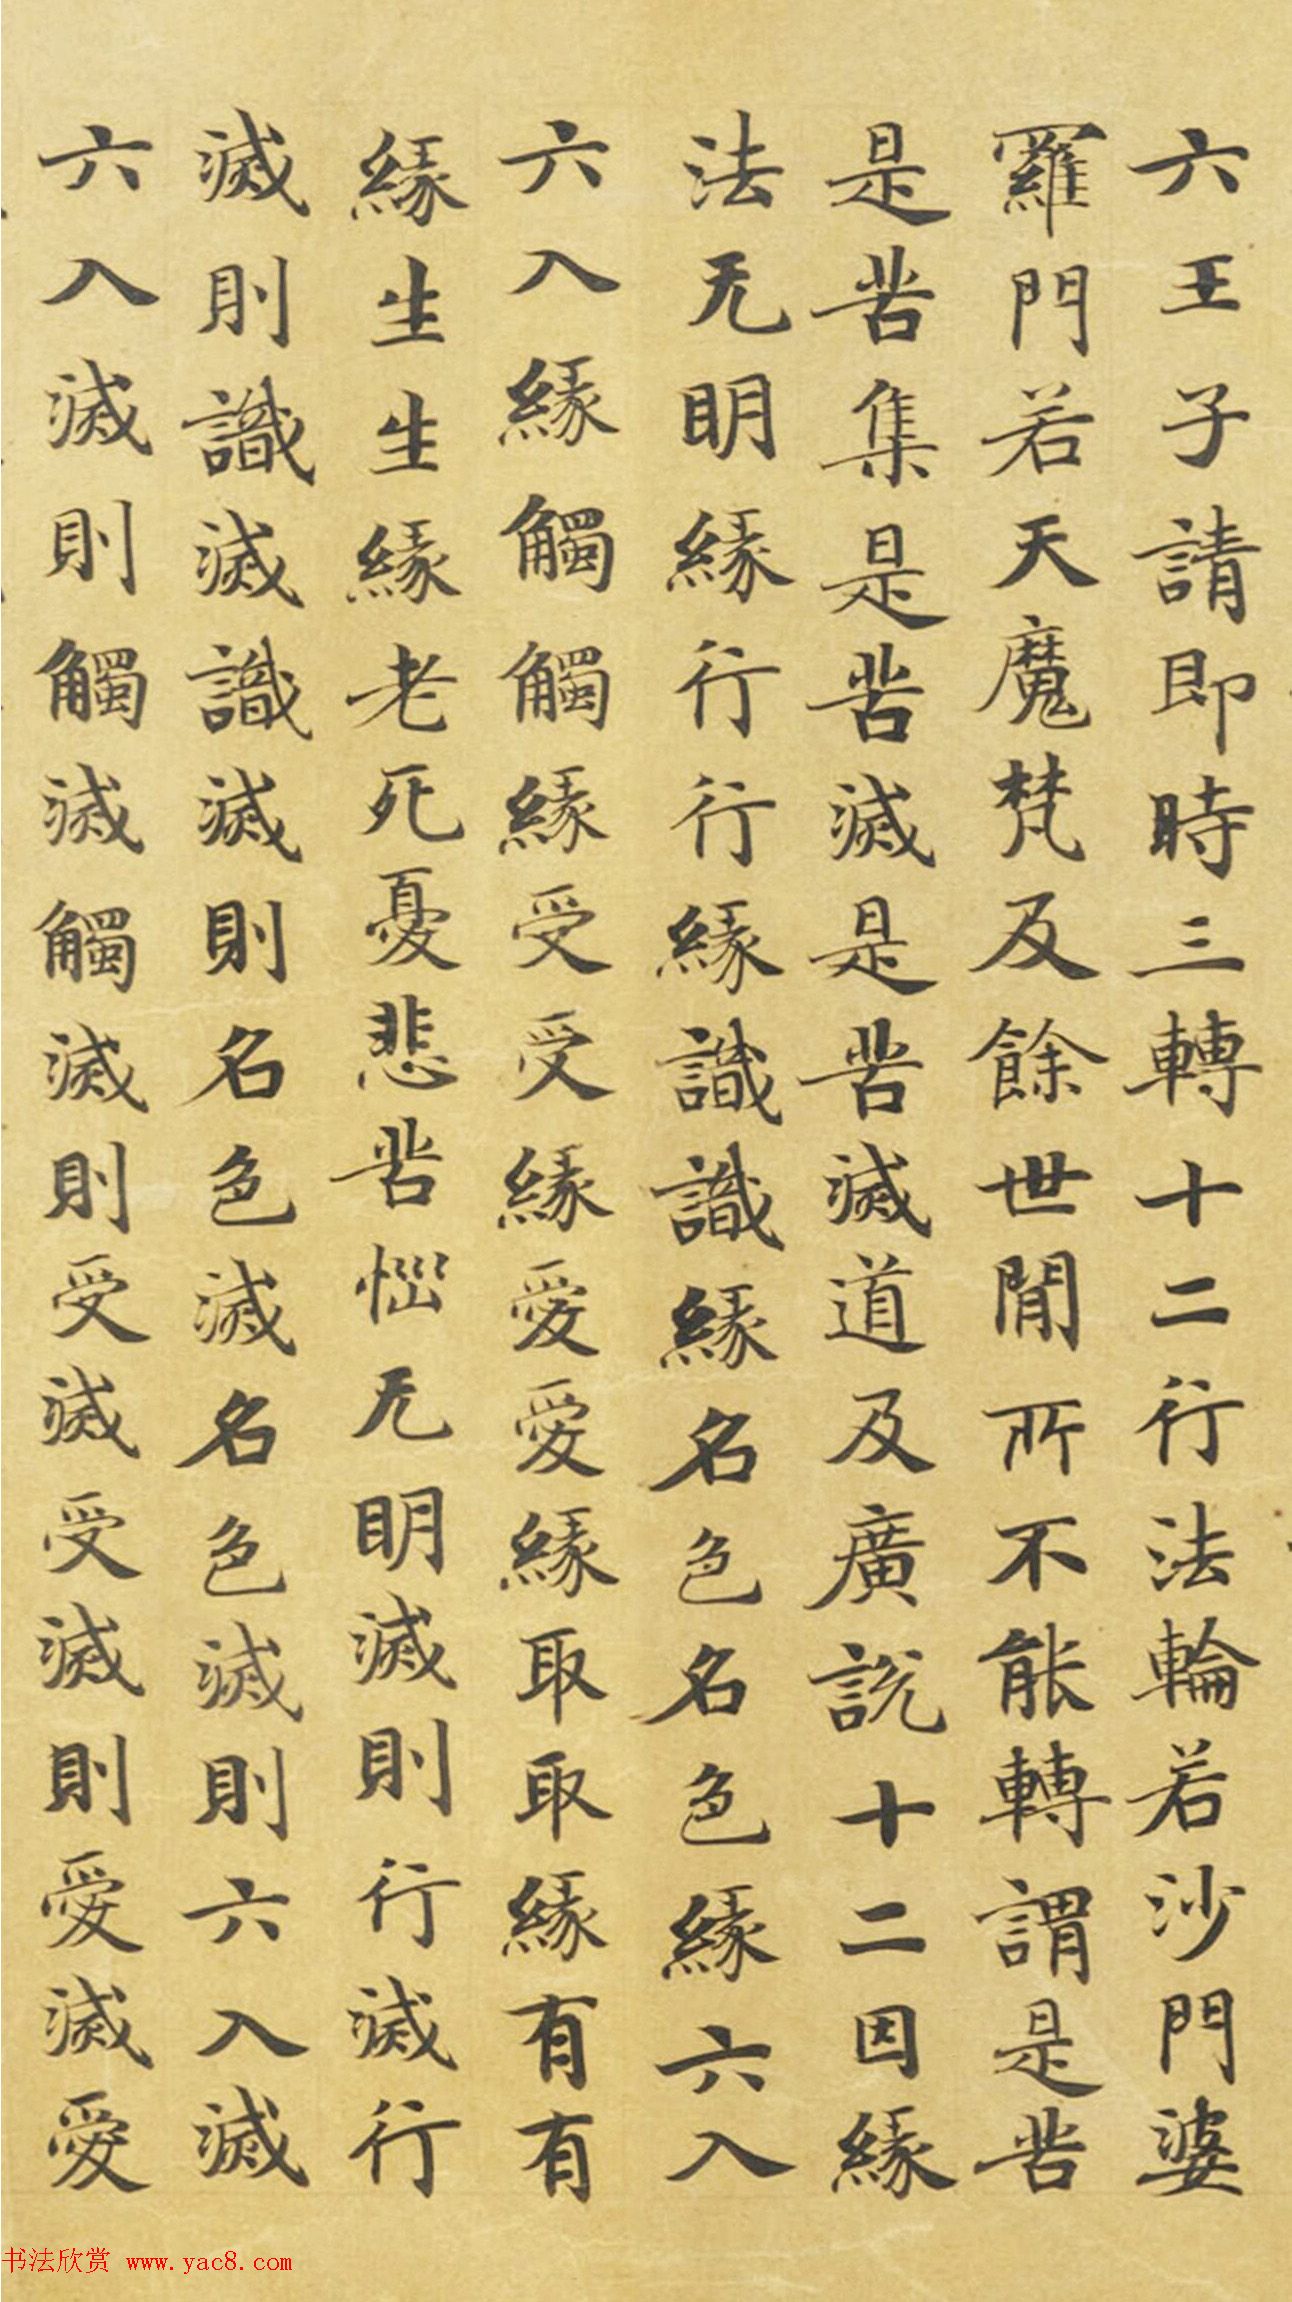 六王子請即時三轉十二行法輪若沙門婆
羅門若天魔梵及餘世間所不能轉謂是苦
是苦集是苦滅是苦滅道及廣說十二因緣
法无明緣行行緣識識緣名色名色緣六入
六入緣觸觸緣受受緣愛愛緣取取緣有有
緣生生緣老死憂悲苦惱无明滅則行滅行
滅則識滅識滅則名色滅名色滅則六入滅
六入滅則觸滅觸滅則受滅受滅則愛滅愛
书法欣赏 www.yac8.com